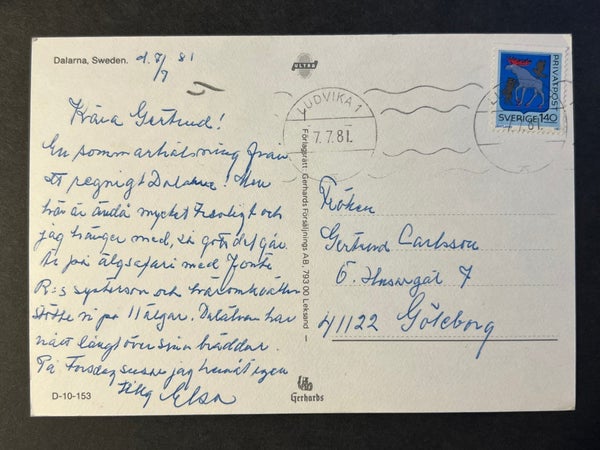 Dalarna, Sweden. d. 7/7 81
ULTRA
Kära Gertrud!
En sommarhälsning från
ett regnigt Dalarna! Men
här är ändå mycket trevligt och
jag hänger med, så gott det går.
på älgsafari med
R:s systerson och
stötte vi på 11 älgar. Dalälven har
nått långt över sina bräddar.
På Torsdag jag hemåt igen
Elsa
D-10-153
Förlagsrätt Gerhards Försäljnings AB, 793 00 Leksand
Gerhards
LUDVIKA 1
7.7.81
PRIVATPOST
SVERIGE 140
LUDVIKA 1
7.7.81
Fröken
Gertrud Carlsson
Ö. Husargat 7
41122 Göteborg